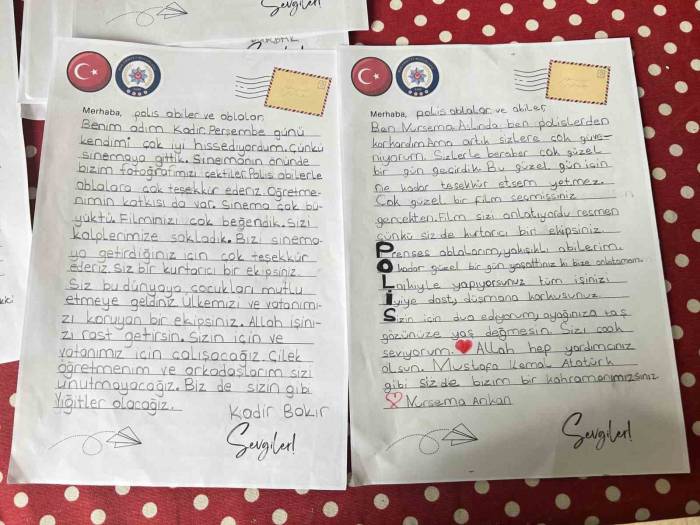 Sevgiler!
Merhaba, polis abiler ve ablalar.
Benim adım Kadir. Perşembe günü
kendimi çok iyi hissediyordum. Çünkü
sinemaya gittik. Sinemanın önünde
bizim fotoğrafımızı çektiler. Polis abilerle
ablalara çok teşekkür ederiz. Öğretme-
nimin katkısı da var. Sinema çok bü-
yüktü. Filminizi çok beğendik. Sizi
kalplerimize sakladık. Bizi sinema-
ya getirdiğiniz için çok teşekkür
ederiz. Siz bir kurtarıcı bir ekipsiniz.
Siz bu dünyaya çocukları mutlu
etmeye geldiniz. Ülkemizi ve vatanımı-
zı koruyan bir ekipsiniz. Allah işini-
zi rast getirsin. Sizin için ve
vatanımız için çalışacağız. Çilek
öğretmenim ve arkadaşlarım sizi
unutmayacağız. Biz de sizin gibi
Yiğitler olacağız.
Kadir Bakır
Sevgiler!
Merhaba, polis ablalar ve abiler
Ben Nursema. Aslında ben polislerden
korkardım. Ama artık sizlere çok güve-
niyorum. Sizlerle beraber çok güzel
bir gün geçirdik. Bu güzel gün için
ne kadar teşekkür etsem yetmez.
Çok güzel bir film seçmişsiniz
gerçekten. Film sizi anlatıyordu resmen
çünkü siz de kurtarıcı bir ekipsiniz.
Prenses ablalarım, yakışıklı abilerim.
O kadar güzel bir gün yaşattınız ki bize anlatamam.
Laikiyle yapıyorsunuz tüm işinizi
İyiye dost, düşmana korkusunuz
Sizin için dua ediyorum, ayağınıza taş
gözünüze yaş değmesin. Sizi çook
seviyorum. Allah hep yardımcınız
olsun. Mustafa Kemal Atatürk
gibi siz de bizim bir kahramanımızsınız
Nursema Arıkan
Sevgiler!